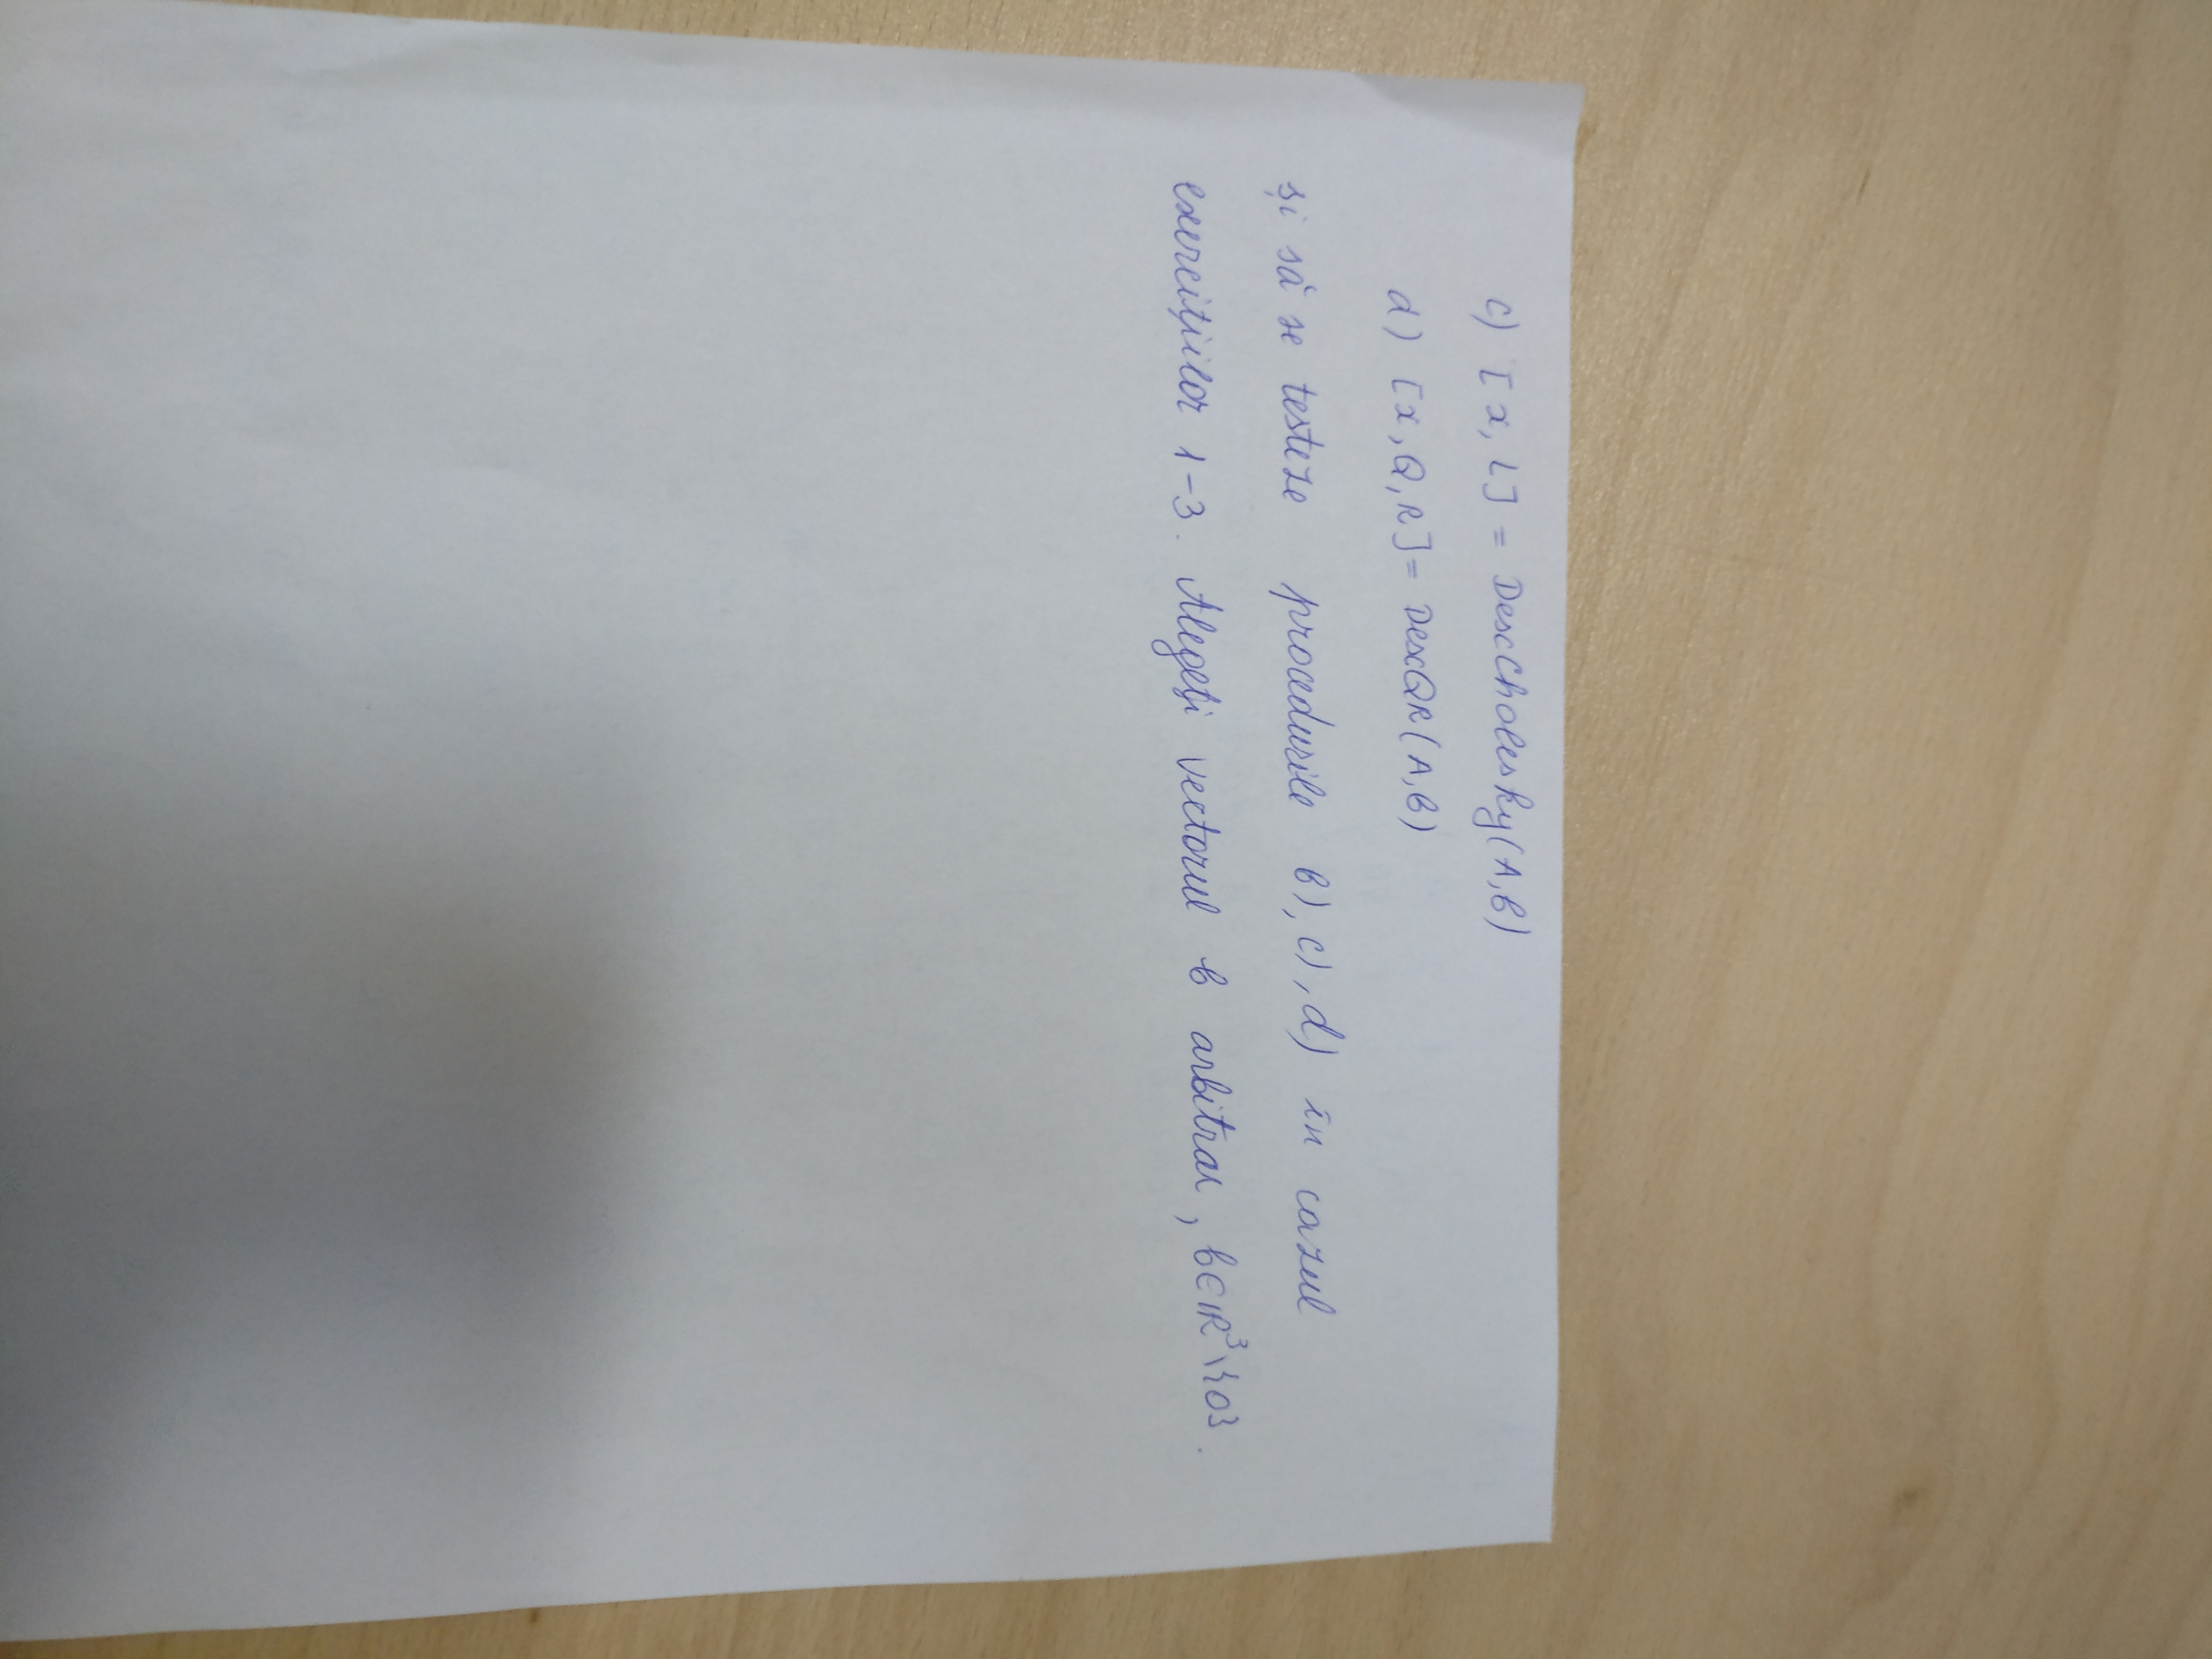 c) [x, L] = DescCholesky(A,b)
d) [x,Q,R] = DescQR(A,b)
și să se testeze procedurile b), c), d) în cazul
exercițiilor 1-3. Alegeți vectorul b arbitrar, b∈ℝ³\{0}.